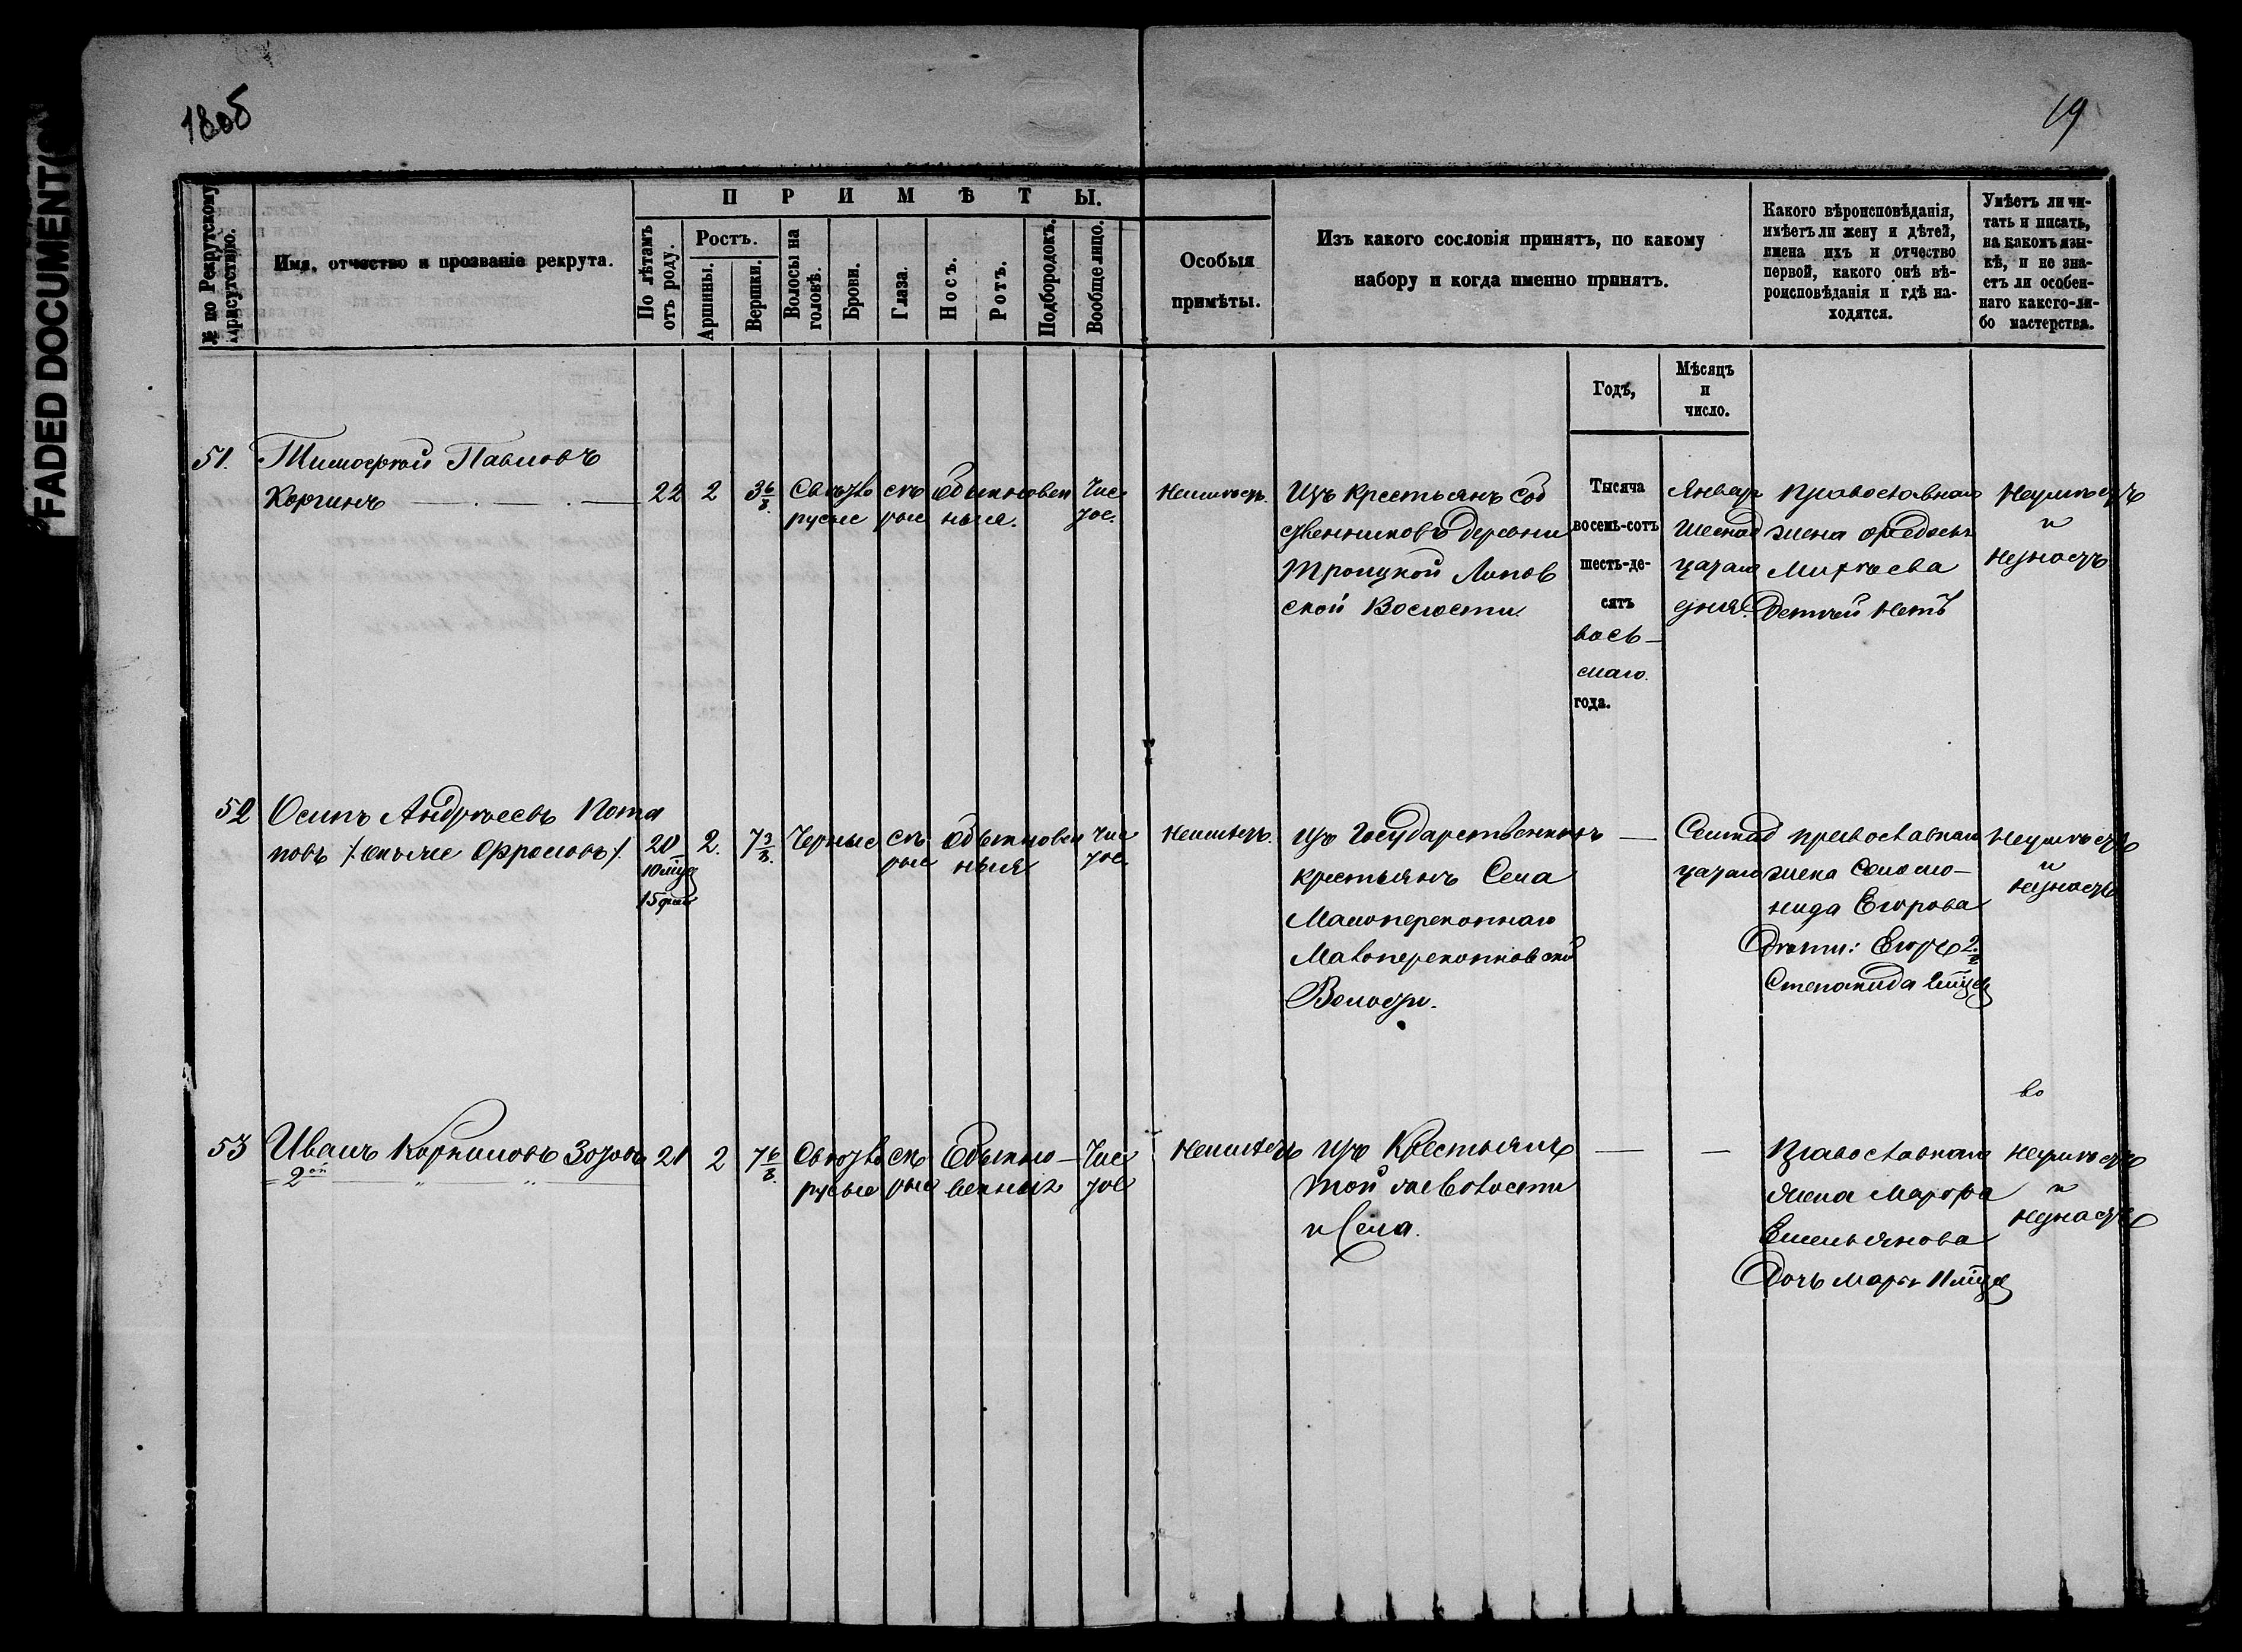 1868
19
FADED DOCUMENT(S)
№ по Рекрутскому присутствію.
Имя, отчество и прозваніе рекрута.
ПРИМѢТЫ.
По лѣтамъ отъ роду.
Ростъ.
Аршины.
Вершки.
Волосы на головѣ.
Брови.
Глаза.
Носъ.
Ротъ.
Подбородокъ.
Вообще лицо.
Особыя
примѣты.
Изъ какого сословія принятъ, по какому
набору и когда именно принятъ.
Какого вѣроисповѣданія,
имѣетъ ли жену и дѣтей,
имена ихъ и отчество
первой, какого онѣ вѣ-
роисповѣданія и гдѣ на-
ходятся.
Умѣетъ ли чи-
тать и писать,
на какомъ язы-
кѣ, и не зна-
етъ ли особен-
наго какого-ли-
бо мастерства.
Годъ,
Мѣсяцъ
и
число.
51. Тимофей Павловъ
Коргинъ
22 2 3 6/8
Свѣтло
русые
сѣ
рые
обыкновен
ныя.
Чис
тое.
Неимѣетъ.
Изъ крестьянъ соб
ственниковъ деревни
Троицкой Липов
ской Волости
Тысяча
восемь-сотъ
шесть-де-
сятъ
вось-
маго
года.
Января
шеснад
цатаго
дня.
Православнаго
жена Федосья
Михѣева
детей нетъ
Неумѣетъ
и
незнаетъ
52 Осипъ Андреевъ Пота
повъ /онъ же Фроловъ/.
20
10 мѣс
15 дней
2. 7 3/8.
Черные
сѣ
рые
обыкновен
ныя
чис
тое
Неимѣетъ.
изъ Государственныхъ
крестьянъ Села
Малоперекопнаго
Малоперекопновской
Волости.
Семнад
цатаго
православнаго
жена Соломо-
нида Егорова
Дѣти: Егоръ 2
Степанида
Неумѣетъ
и
незнаетъ
53 Иванъ Корниловъ Зотовъ
2ой
21 2 7 6/8.
Свѣтло
русые
сѣ
рые
Обыкно-
венныя
Чис
тое
Неимѣетъ
изъ Крестьянъ
той же волости
и Села.
во
Православнаго
жена Марфа
Емельянова
Дочь Марья 11 мѣс
Неумѣетъ
и
незнаетъ